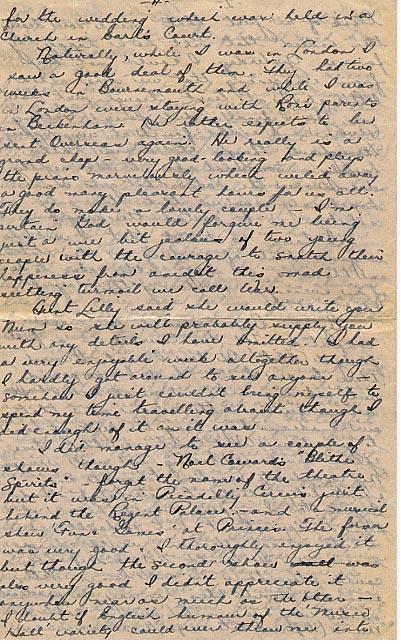 -4-
for the wedding which was held in a
Church in Earl's Court.
Naturally, while I was in London I
saw a good deal of them. They had two
weeks in Bournemouth and while I was
in London were staying with Ron's parents
in Beckenham. He rather expects to be
sent Overseas again. He really is a
grand chap - very good-looking and plays
the piano marvelously which whiled away
a good many pleasant hours for us all.
They do make a lovely couple. I'm
certain God would forgive me being
just a wee bit jealous of two young
people with the courage to snatch their
happiness from amidst this mad
seething turmoil we call War.
Aunt Lilly said she would write you
Mum so she will probably supply you
with any details I have omitted. I had
a very enjoyable week altogether though
I hardly got around to see anyone -
somehow I just couldn't bring myself to
spend my time travelling about though I
did enough of it as it was.
I did manage to see a couple of
shows though - Noel Coward's "Blithe
Spirits" - forget the name of the theatre
but it was in Picadilly Circus just
behind the Regent Palace, - and a musical
show "Fun & Games" at Princes. The former
was very good & I thoroughly enjoyed it
but though the second show was
also very good I didn't appreciate it
anywhere near as much as the other -
I doubt if English humour of the Music
Hall variety could ever throw me into